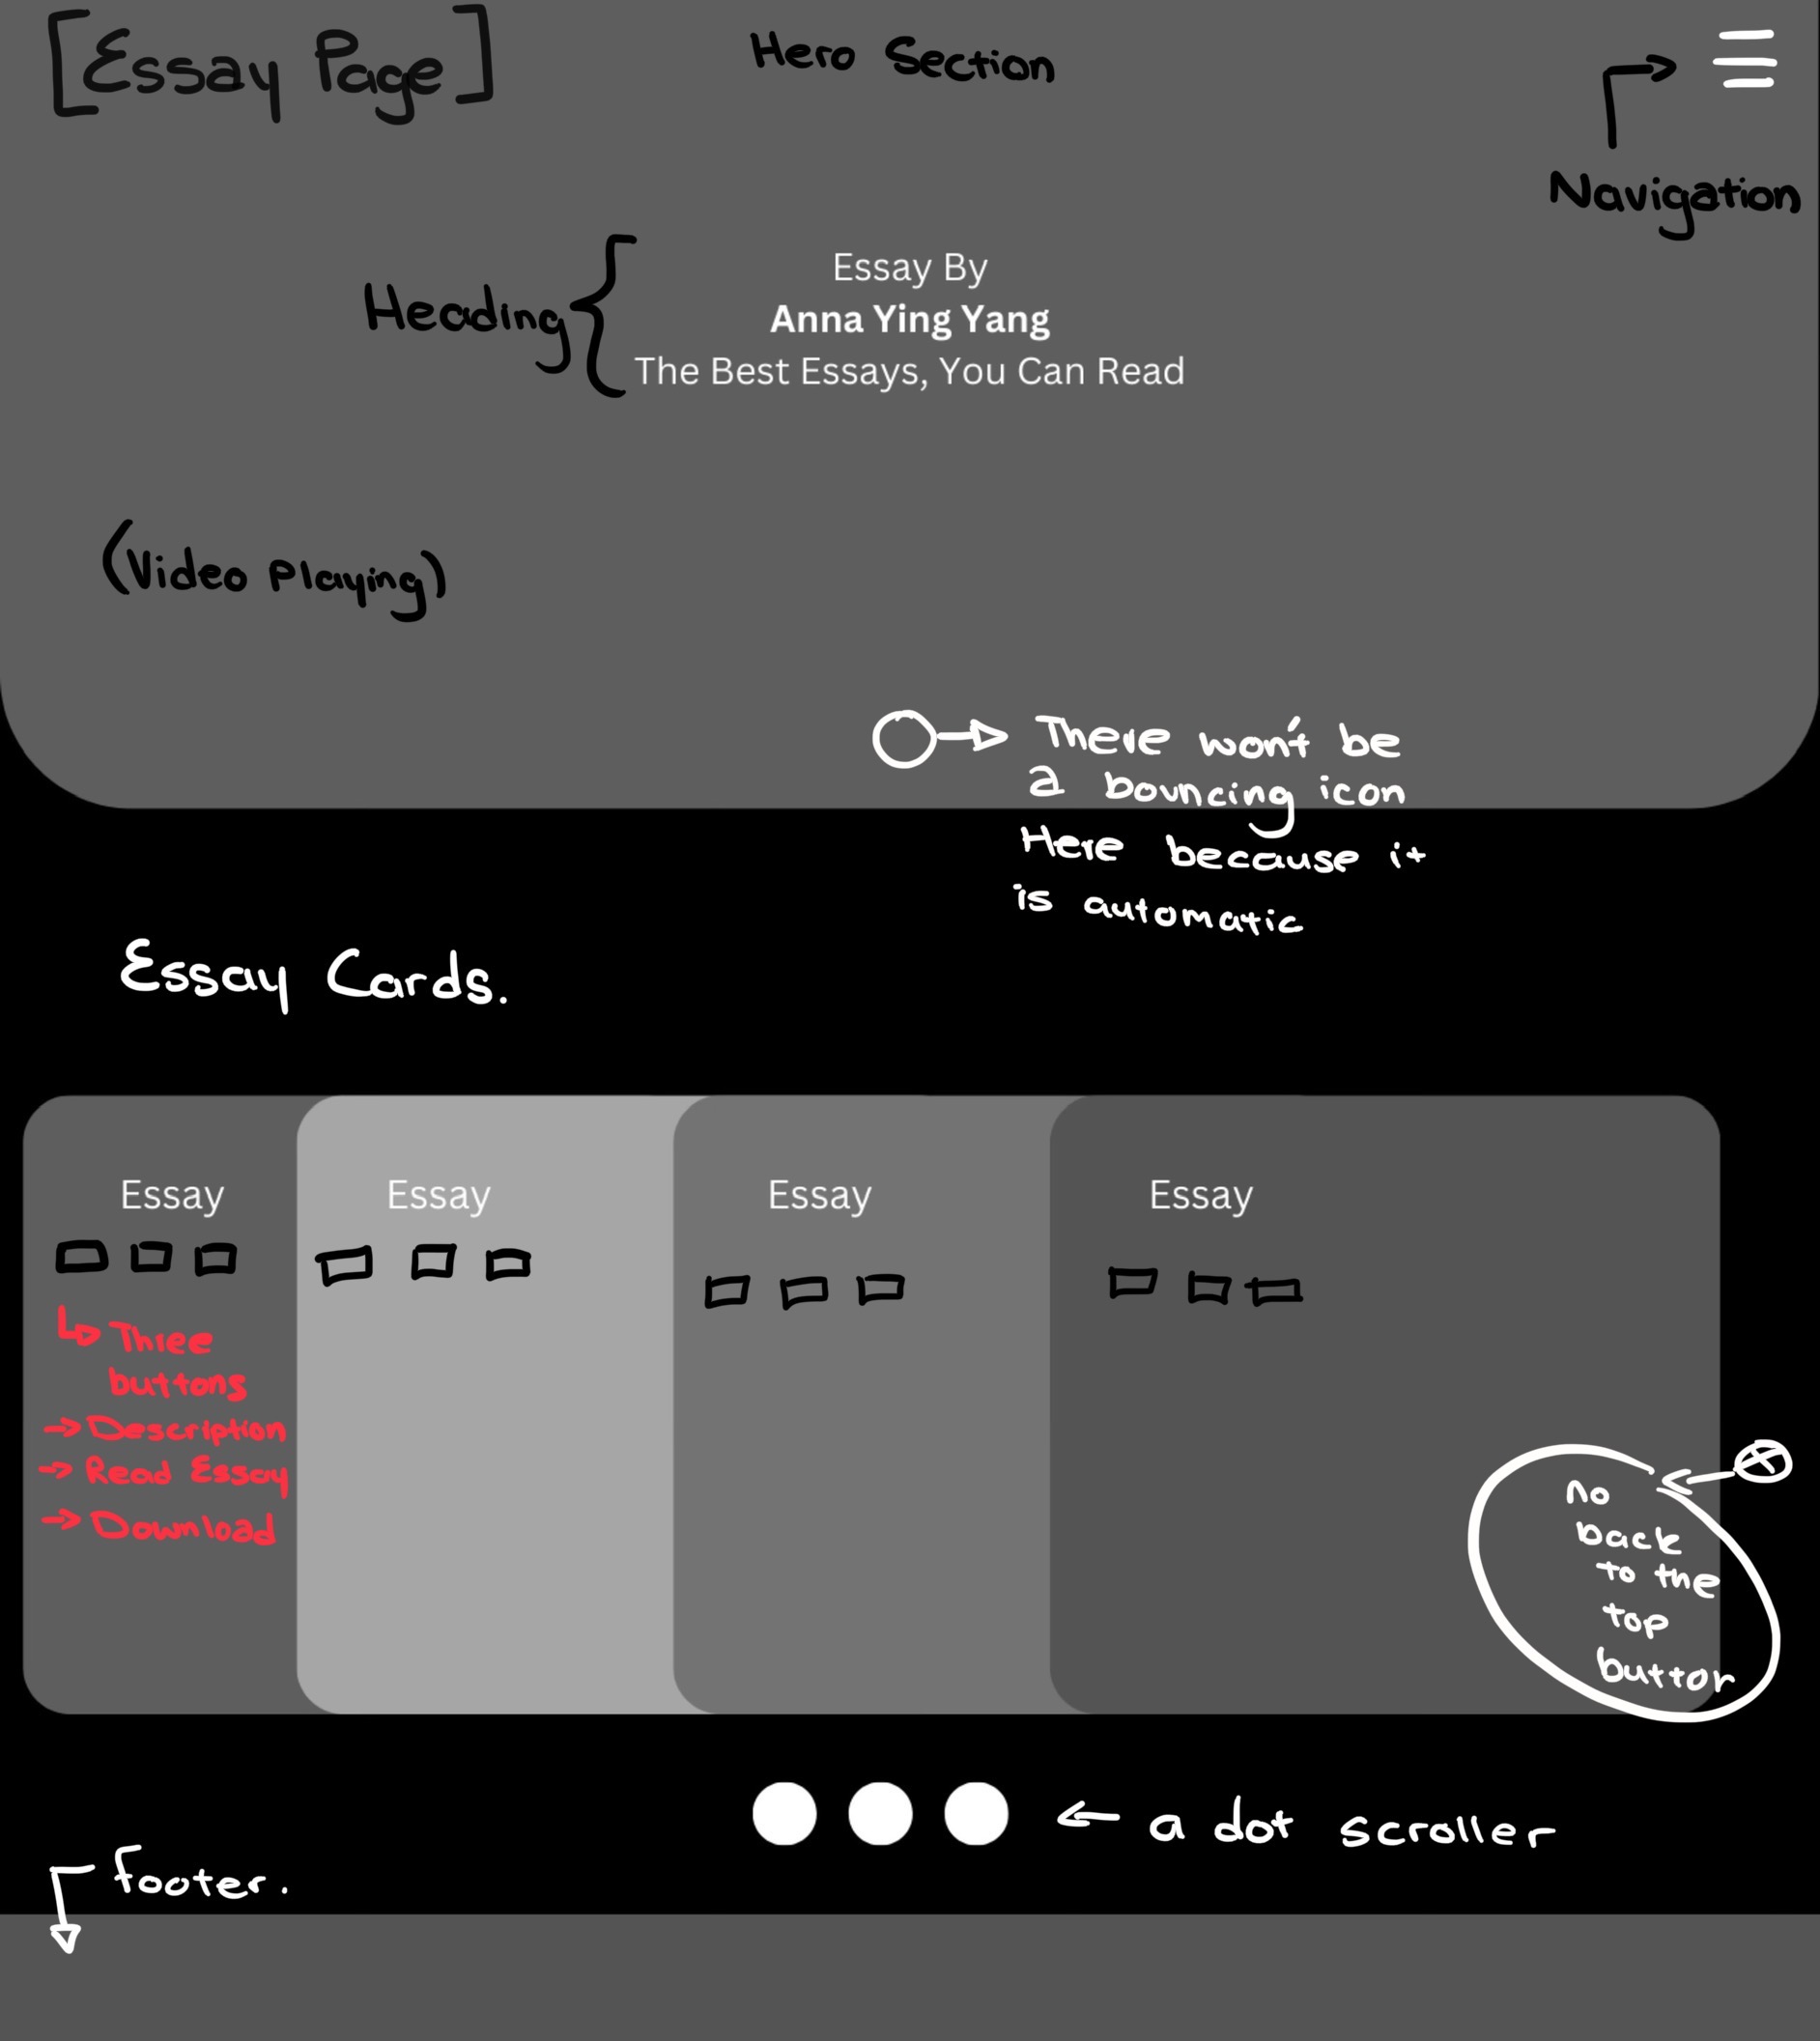 [Essay Page]
Hero Section
Navigation
Heading
Essay By
Anna Ying Yang
The Best Essays, You Can Read
(Video Playing)
There won't be
a bouncing icon
Here because it
is automatic
Essay Cards.
Essay
Essay
Essay
Essay
Three
buttons
→ Description
→ Read Essay
→ Download
no
back
to the
top
button
← a dot scroller
footer.